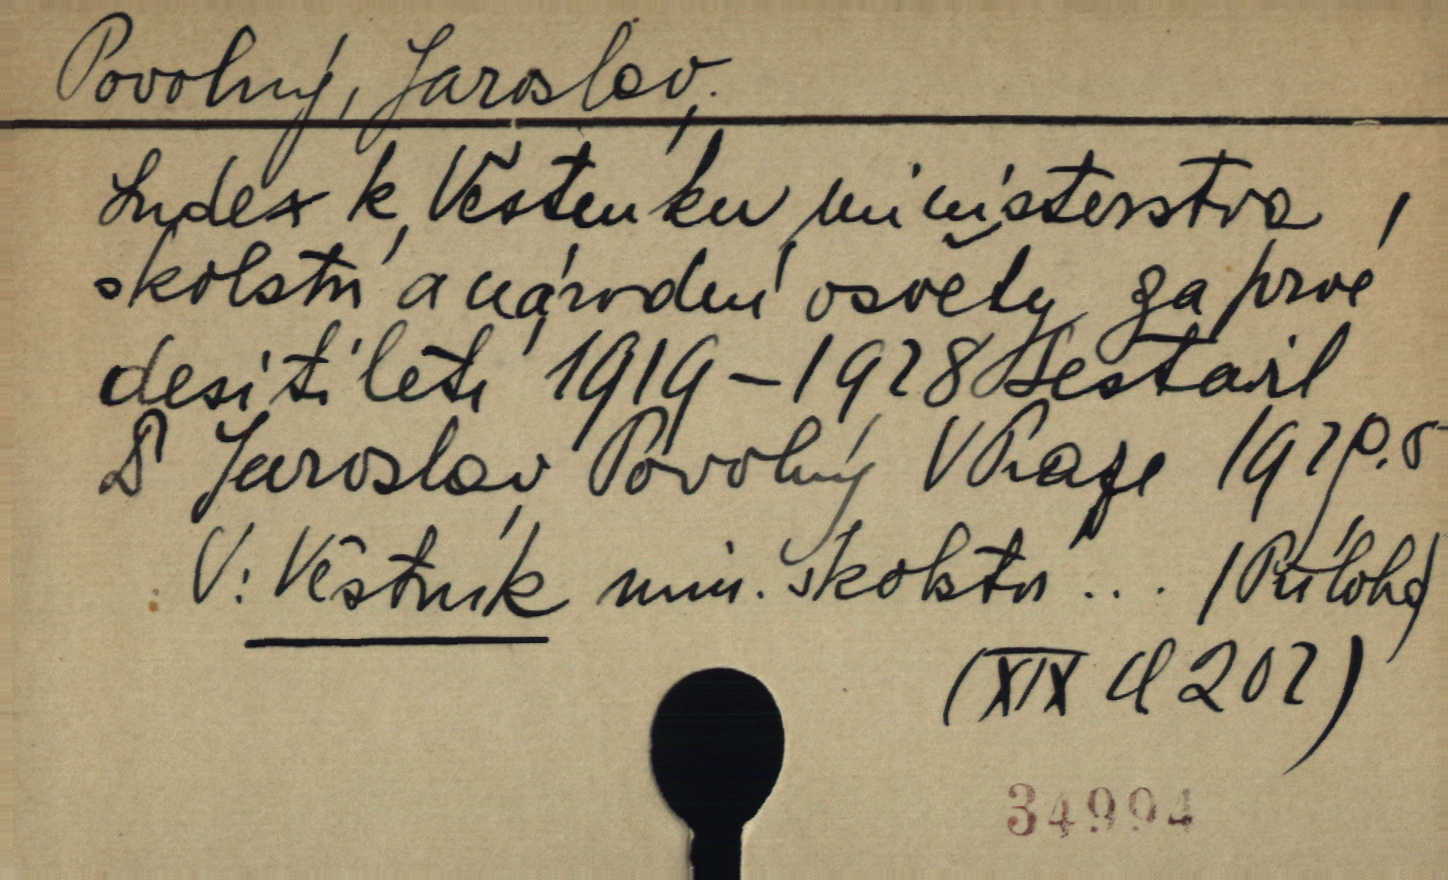 Povolný, Jaroslav.
Index k Věstníku ministerstva
školství a národní osvěty za prvé
desítiletí 1919-1928 Sestavil
Dr Jaroslav Povolný V Praze 1929. 8°
V: Věstník min. školství ... /Příloha/
(XIX d 202)
34994